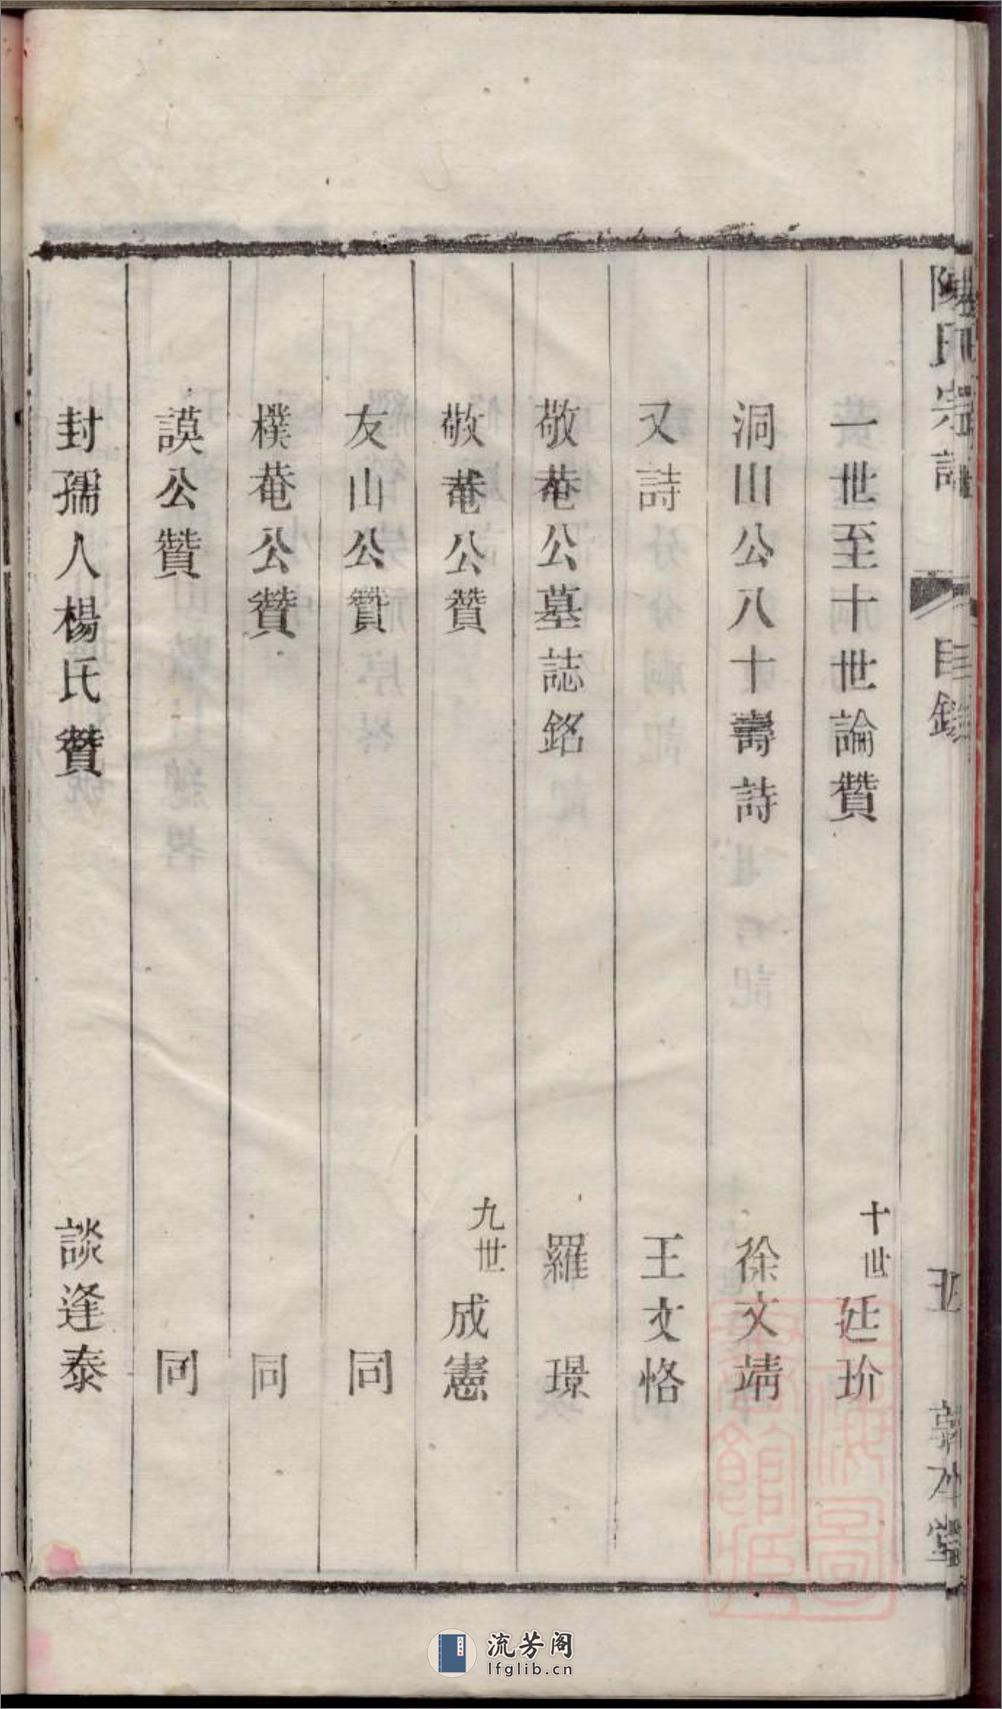 陳氏宗譜 目錄 五
一世至十世論贊 十世廷玠
洞山公八十壽詩 徐文靖
又詩 王文恪
敬菴公墓誌銘 羅璟
敬菴公贊 九世成憲
友山公贊 同
樸菴公贊 同
謨公贊 同
封孺人楊氏贊 談逢泰
流芳阁
lfglib.cn